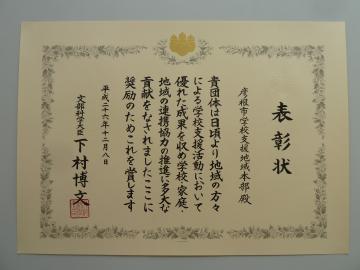 表彰状
彦根市学校支援地域本部殿
貴団体は日頃より地域の方々
による学校支援活動において
優れた成果を収め学校・家庭・
地域の連携協力の推進に多大な
貢献をなされましたここに
奨励のためこれを賞します
平成二十六年十二月八日
文部科学大臣 下村博文